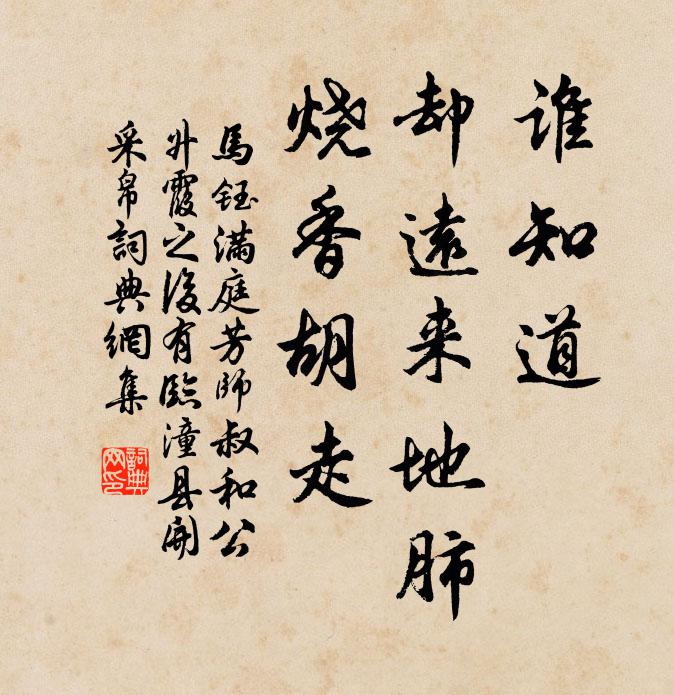 谁知道
却遠来地肺
烧香胡走
馬钰滿庭芳師叔和公
升霞之後有臨潼县開
采帛詞典網集
詞典网印